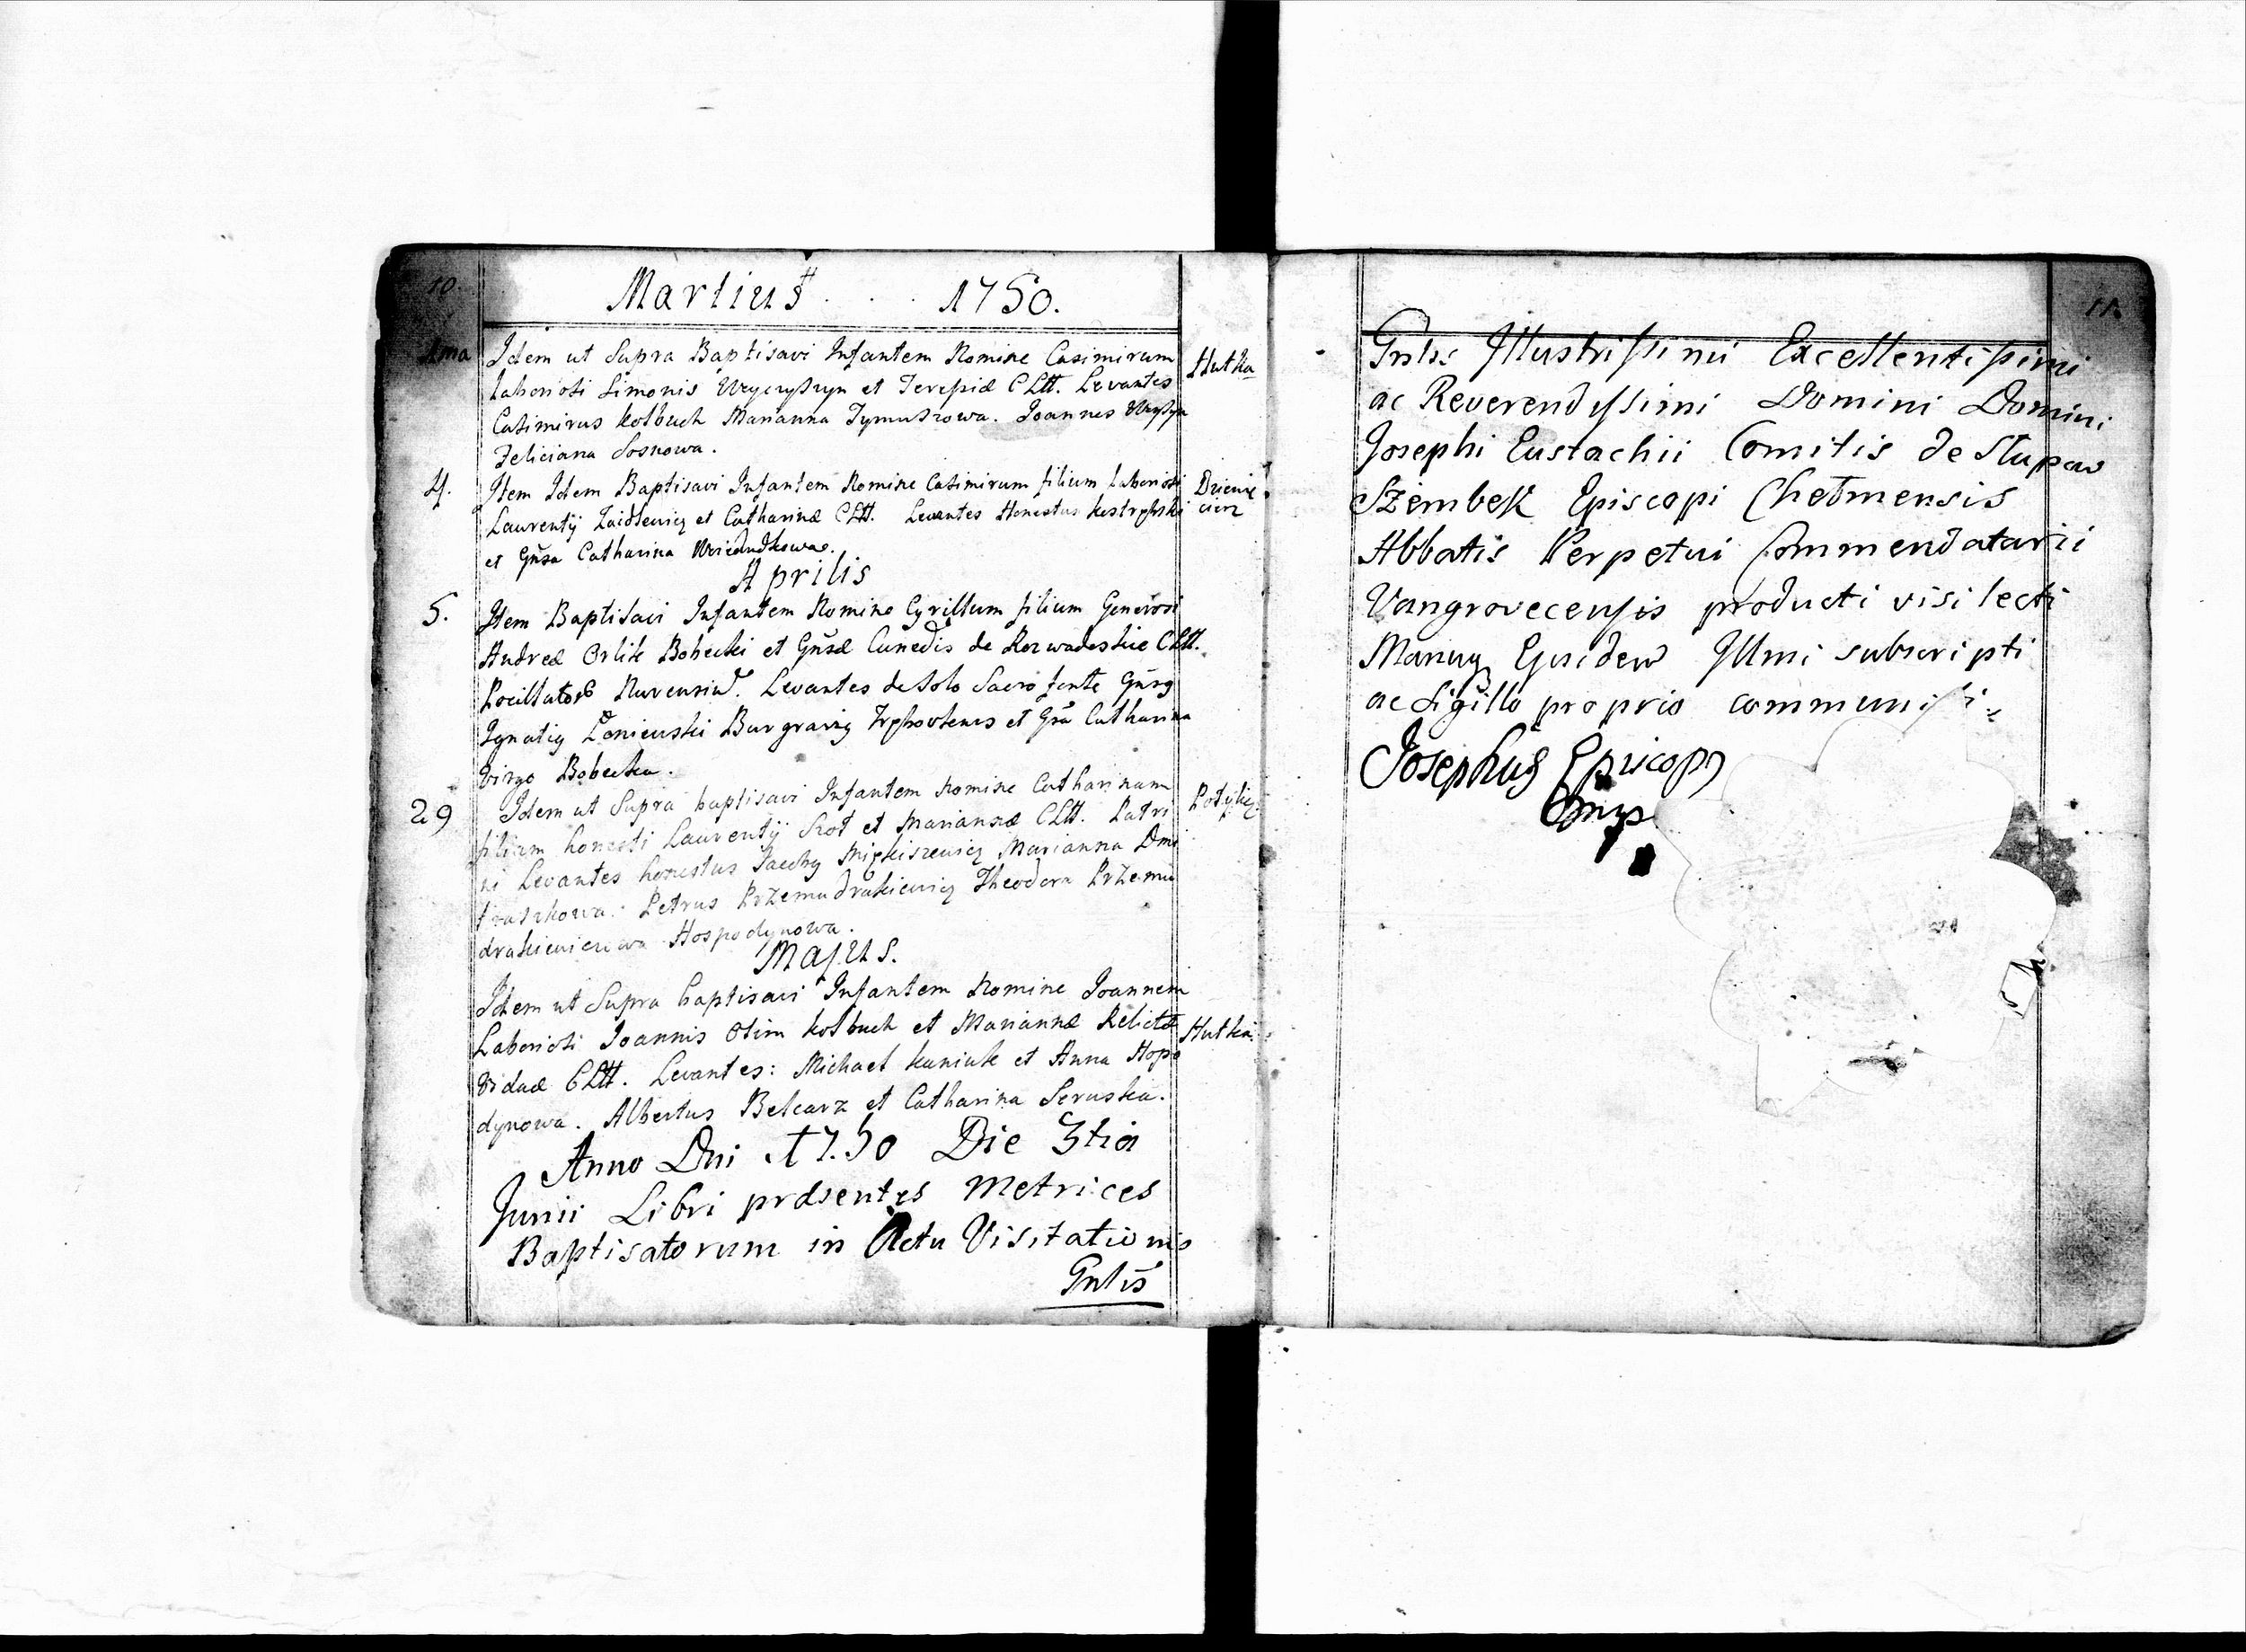 10.
Martius . . . 1750.
1ma Idem ut Supra Baptisavi Infantem Nomine Casimirum Hutka
Laboriosi Simonis et CLtt. Levantes
Casimirus Kołbuch Marianna Tymuszowa. Joannes
Feliciana Sosnowa.
4. Item Idem Baptisavi Infantem Nomine Casimirum filium Laboriosi
Laurentij et Catharinæ CLtt. Levantes Honestus
et Gnsa Catharina
Aprilis
5. Item Baptisavi Infantem Nomine Cyrillum filium Generosi
Andreæ Orlik Bobecki et Gnsæ Cunedis de CLtt.
Levantes de Solo Sacro fonte Gnsg
Ignatig et Gna Catharina
Virgo Bobecka.
29 Idem ut Supra baptisavi Infantem Nomine Catharinam
filiam honesti Laurentij Szot et Mariannæ CLtt. Patri
ni Levantes honestus Marianna Dmi
traszkowa. Petrus Przemudrakiewicz Theodora Przemu
drakiewiczowa Hospodynowa.
Majus.
Idem ut Supra baptisavi Infantem Nomine Joannem
Laboriosi Joannis Olim Kołbuch et Mariannæ Relictæ Hutka.
Viduæ CLtt. Levantes: Michael Kaniuk et Anna Hospo
dynowa. Albertus Belcarz et Catharina
Anno Dni 1750 Die 3tia
Junii Libri præsentes Metrices
Baptisatorum in Actu Visitationis
Gnlis
11.
Gnlis Illustrissimi Excellentissimi
ac Reverendyssimi Domini Domini
Josephi Eustachii Comitis de Slupow
Szembek Episcopi Chełmensis
Abbatis Perpetui Commendatarii
Vangrovecensis producti visi lecti
Manug Ejusdem Illmi subscripti
ac Sigillo proprio communisi
Josephus Episcop9